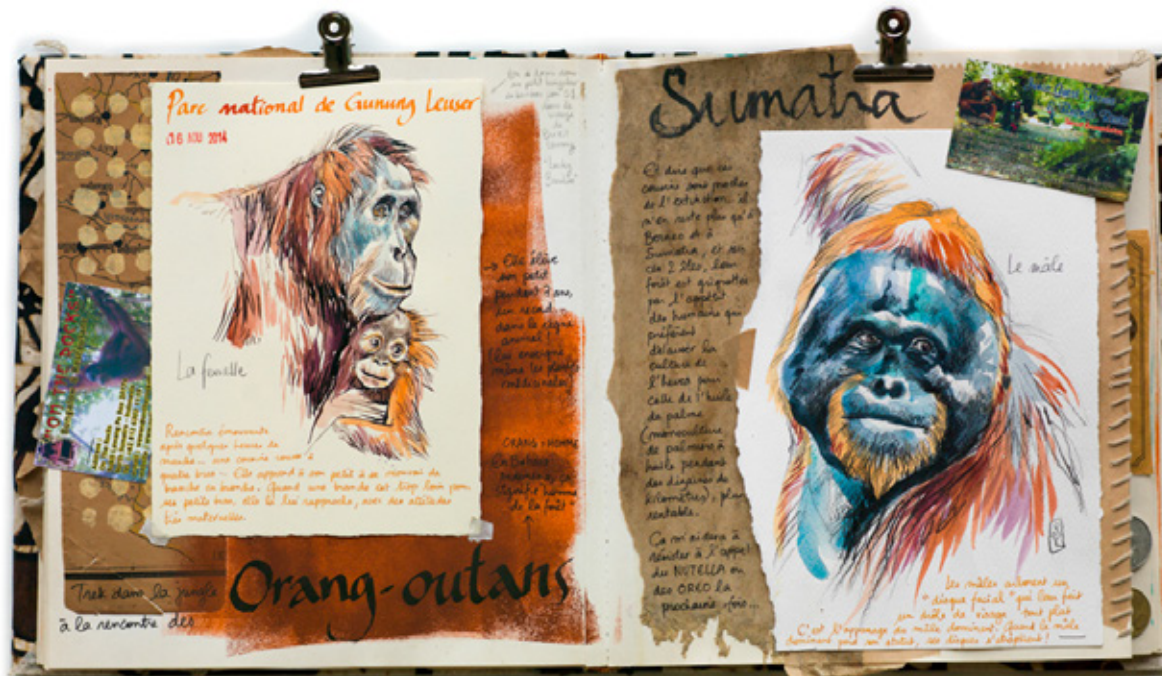 Parc national de Gunung Leuser
06 2014
La femelle
Rencontre émouvante
après quelques heures de
marche... une cousine rousse à
quatre bras - Elle apprend à son petit à se mouvoir de
branche en branche. Quand une branche est trop loin pour
ses petits bras, elle la lui rapproche, avec des attitudes
très maternelles.
→ Elle élève
son petit
pendant ans,
un record
dans le règne
animal !
Elle enseigne
même les plantes
médicinales
ORANG = HOMME
En Bahasa
signifie homme
de la forêt
Trek dans la jungle
à la rencontre des
Orang-outans
ON THE ROCKS
Sumatra
Et dire que ces
cousins sont proches
de l'extinction: il
n'en reste plus qu'à
Borneo et à
Sumatra, et sur
ces 2 îles, leur
forêt est grignotée
par l'appétit
des humains qui
préfèrent
délaisser la
culture de
l'hévéa pour
celle de l'huile
de palme
(monoculture
de palmiers à
huile pendant
des dizaines de
kilomètres), plus
rentable.
Ça m'aidera à
résister à l'appel
du NUTELLA ou
des OREO la
prochaine fois...
Le mâle
Les mâles arborent un
"disque facial" qui leur fait
un drôle de visage tout plat
C'est l'apanage du mâle dominant. Quand le mâle
dominant perd son statut, ses disques s'atrophient !